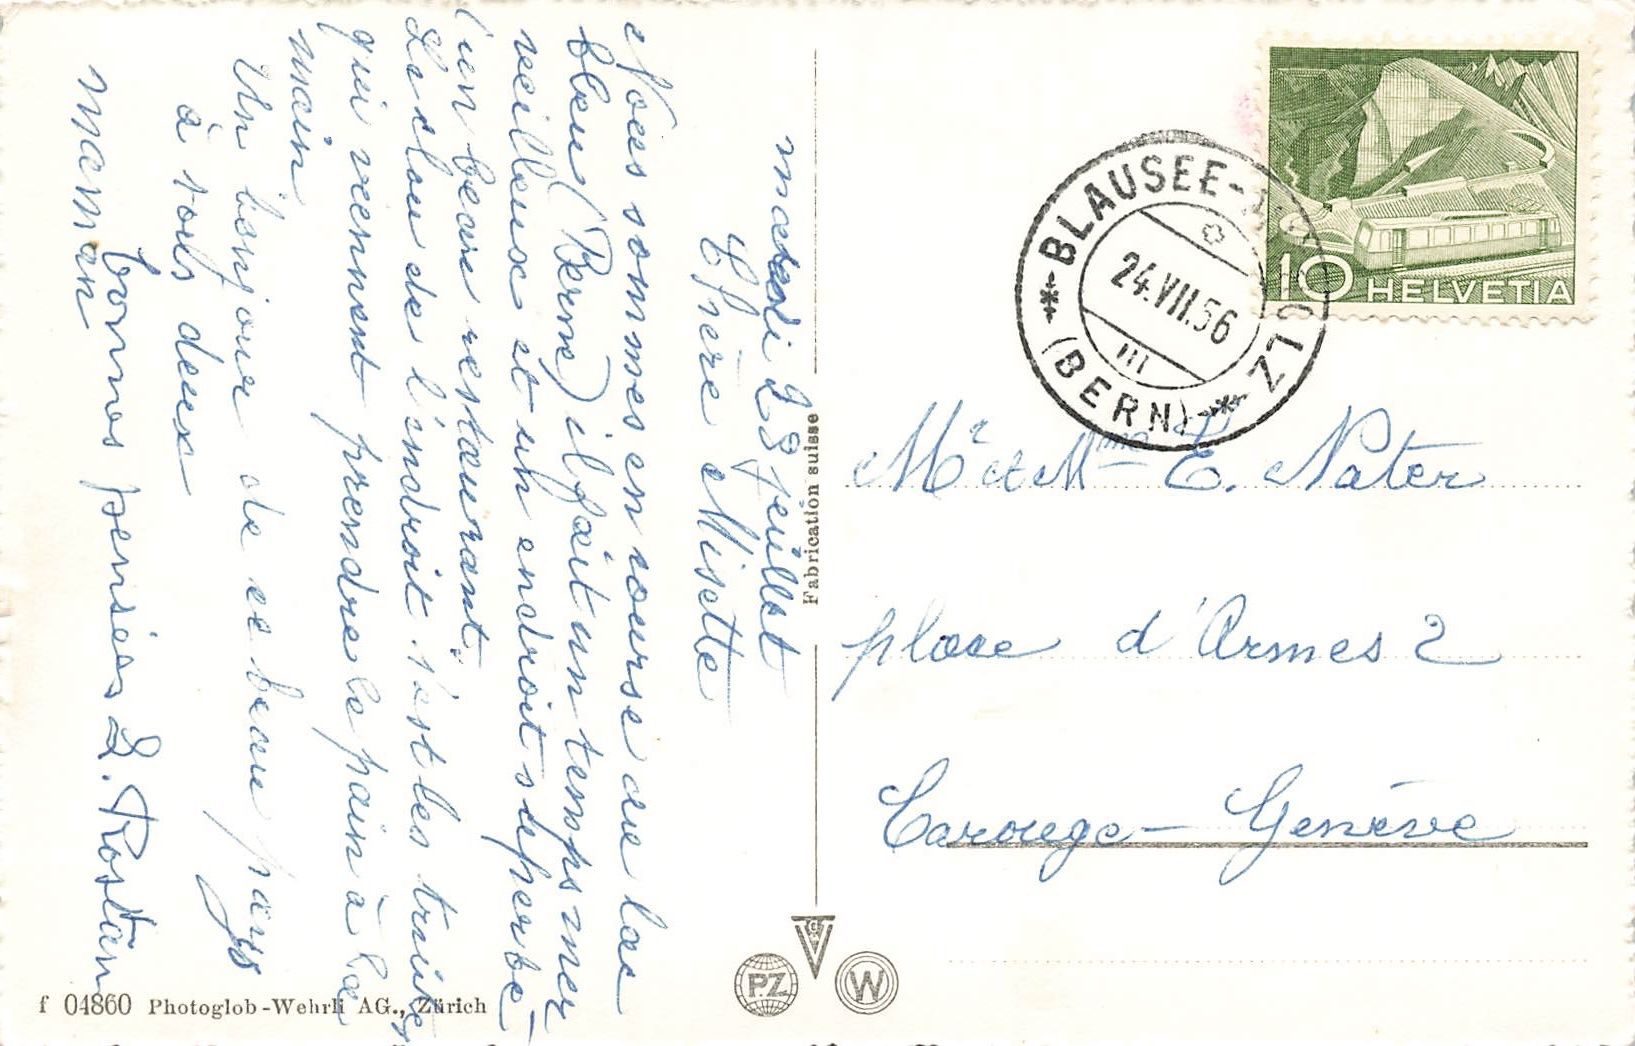 mardi 23 juillet
Chère Misette
Nous sommes en course au lac
bleu (Berne) il fait un temps mer
veilleux et un endroit superbe
(un beau restaurant.
Le clou de l'endroit c'est les truites
qui viennent prendre le pain à la
main
Un bonjour de ce beau pays
à vous deux
bonnes pensées L. Rostan
maman
Fabrication suisse
BLAUSEE-
(BERN)
24.VII.56
III
10 HELVETIA
Mr et Mme E. Nater
place d'Armes 2
Carouge - Genève
PZ
W
f 04860 Photoglob-Wehrli AG., Zürich